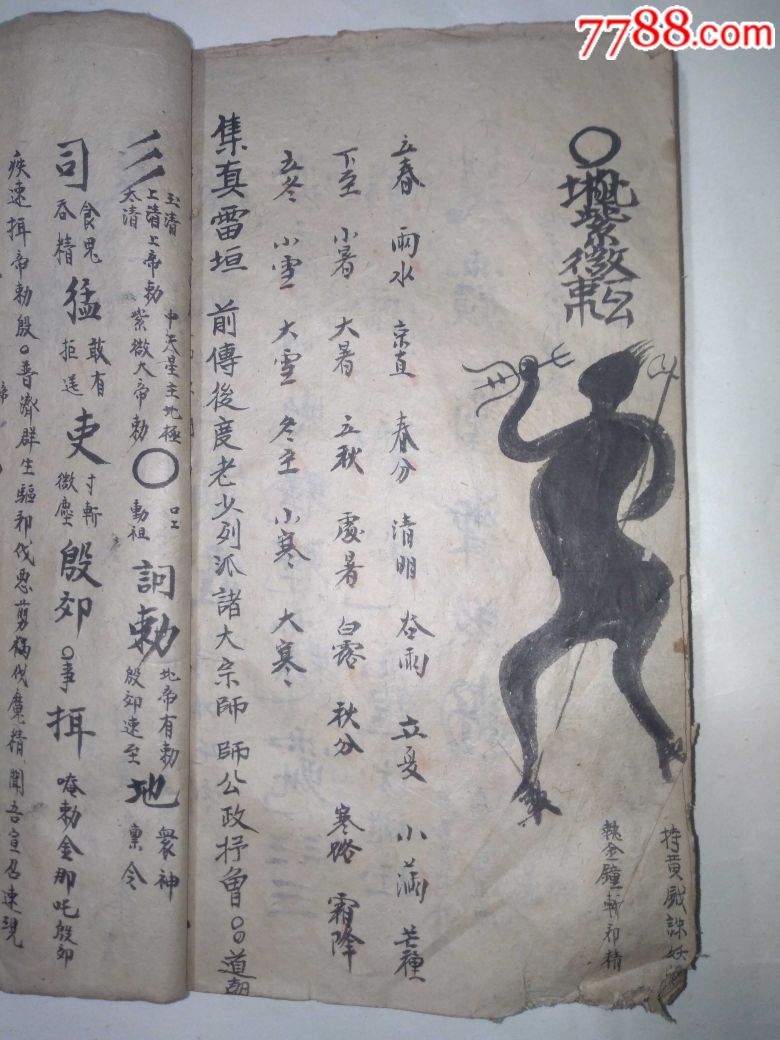 7788.com
持黄戉誅妖
執金鐘斬邪精
立春 雨水 京直 春分 清明 谷雨 立夏 小滿 芒種
下至 小暑 大暑 立秋 處暑 白露 秋分 寒路 霜降
立冬 小雪 大雪 冬至 小寒 大寒
集真雷垣 前傳後度老少列派諸大宗師 師公政抒魯○○道朝
玉清
上清上帝勅
太清
中天星主地極
紫微大帝勅
○
勳祖
詞勅
地帝有勅
殷郊速至
地
衆神
禀令
司
食鬼
吞精
猛
敢有
拒逆
吏
寸斬
微塵
殷郊
○事
揖
唵勅金那吒殷郊
疾速揖帝勅殷○普濟群生驅邪伐惡剪禍伐魔精聞吾宣召速現